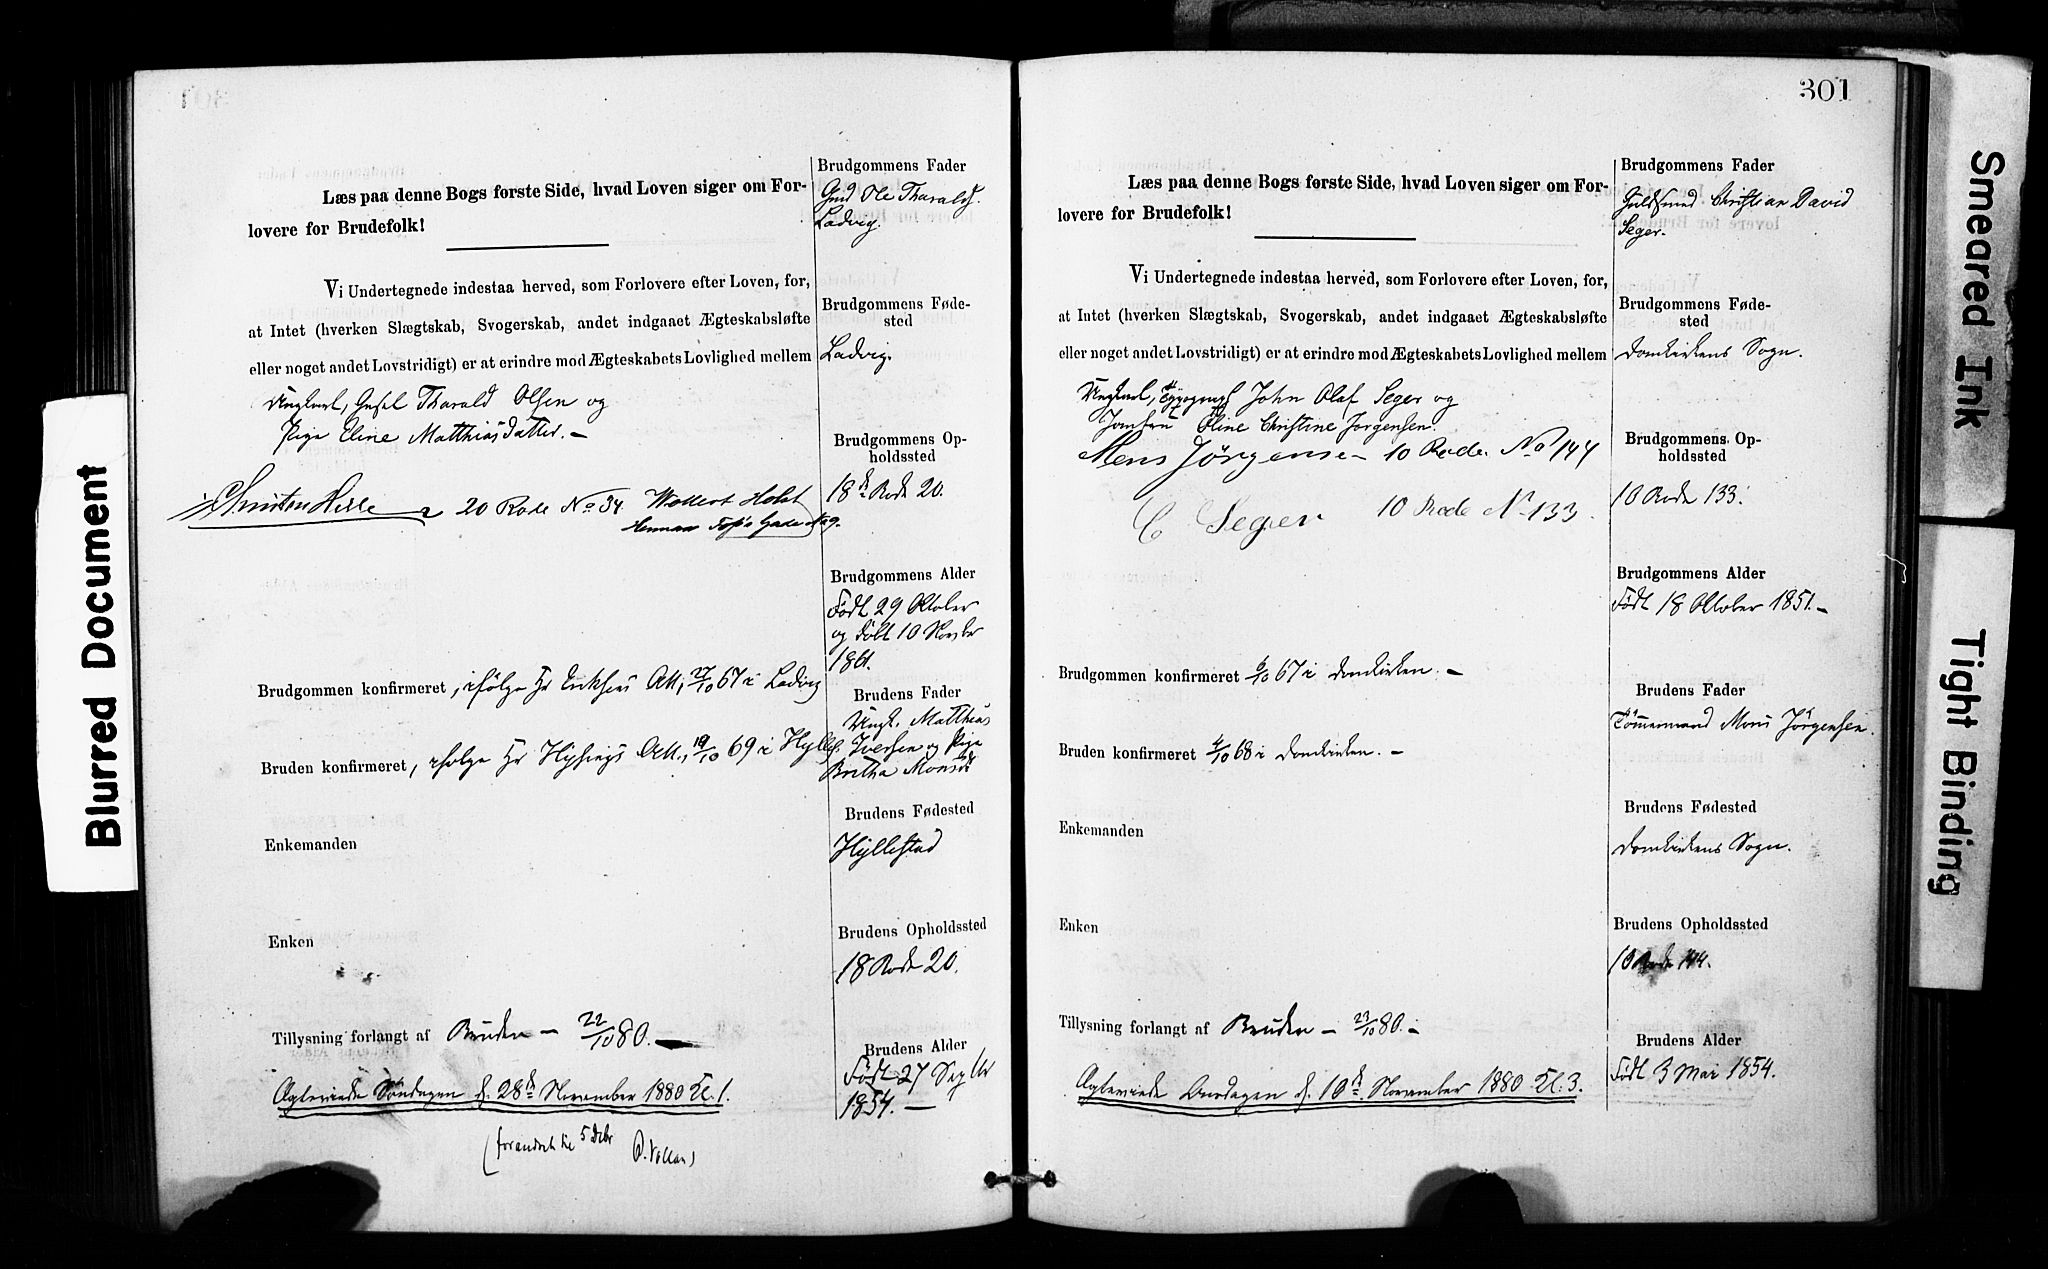 Blurred Document
Læs paa denne Bogs første Side, hvad Loven siger om For-
lovere for Brudefolk!
Vi Undertegnede indestaa herved, som Forlovere efter Loven, for,
at Intet (hverken Slægtskab, Svogerskab, andet indgaaet Ægteskabsløfte
eller noget andet Lovstridigt) er at erindre mod Ægteskabets Lovlighed mellem
Ungkarl, Tharald Olsen og
Pige Eline Matthiasdatter. —
20 Rode No 34. Wollert Holst
Brudgommen konfirmeret, ifølge Hr Att., 27/10 67 i Ladvig
Bruden konfirmeret, ifølge Hr Att., 19/10 69 i
Enkemanden
Enken
Tillysning forlangt af Bruden — 22/10 80. —
Agtevirede Søndagen d. 28de November 1880 Kl. 1.
(forandret til 5 Debr
Brudgommens Fader
Gmd Ole Tharalds.
Ladvig.
Brudgommens Føde-
sted
Ladvig.
Brudgommens Op-
holdssted
18de Rode 20.
Brudgommens Alder
Født 29 Oktober
og døbt 10 Novbr
Brudens Fader
Ungk. Matthias
Iversen og Pige
Britha Monsdr
Brudens Fødested
Hyllestad
Brudens Opholdssted
18 Rode 20.
Brudens Alder
Født 27 Septbr
1854. —
301
Læs paa denne Bogs første Side, hvad Loven siger om For-
lovere for Brudefolk!
Vi Undertegnede indestaa herved, som Forlovere efter Loven, for,
at Intet (hverken Slægtskab, Svogerskab, andet indgaaet Ægteskabsløfte
eller noget andet Lovstridigt) er at erindre mod Ægteskabets Lovlighed mellem
Ungkarl, John Olaf Seger og
Jomfru Oline Christine Jørgensen.
Mons Jørgensen 10 Rode No 144
C Seger 10 Rode No 133.
Brudgommen konfirmeret 6/10 67 i Domkirken. —
Bruden konfirmeret 4/10 68 i Domkirken. —
Enkemanden
Enken
Tillysning forlangt af Bruden — 23/10 80. —
Agtevirede Onsdagen d. 10de November 1880 Kl. 3.
Brudgommens Fader
Guldsmed Christian David
Seger.
Brudgommens Føde-
sted
Domkirkens Sogn.
Brudgommens Op-
holdssted
10 Rode 133.
Brudgommens Alder
Født 18 Oktober 1851. —
Brudens Fader
Tømmermand Mons Jørgensen.
Brudens Fødested
Domkirkens Sogn.
Brudens Opholdssted
10 Rode 144.
Brudens Alder
Født 3 Mai 1854.
Smeared Ink
Tight Binding